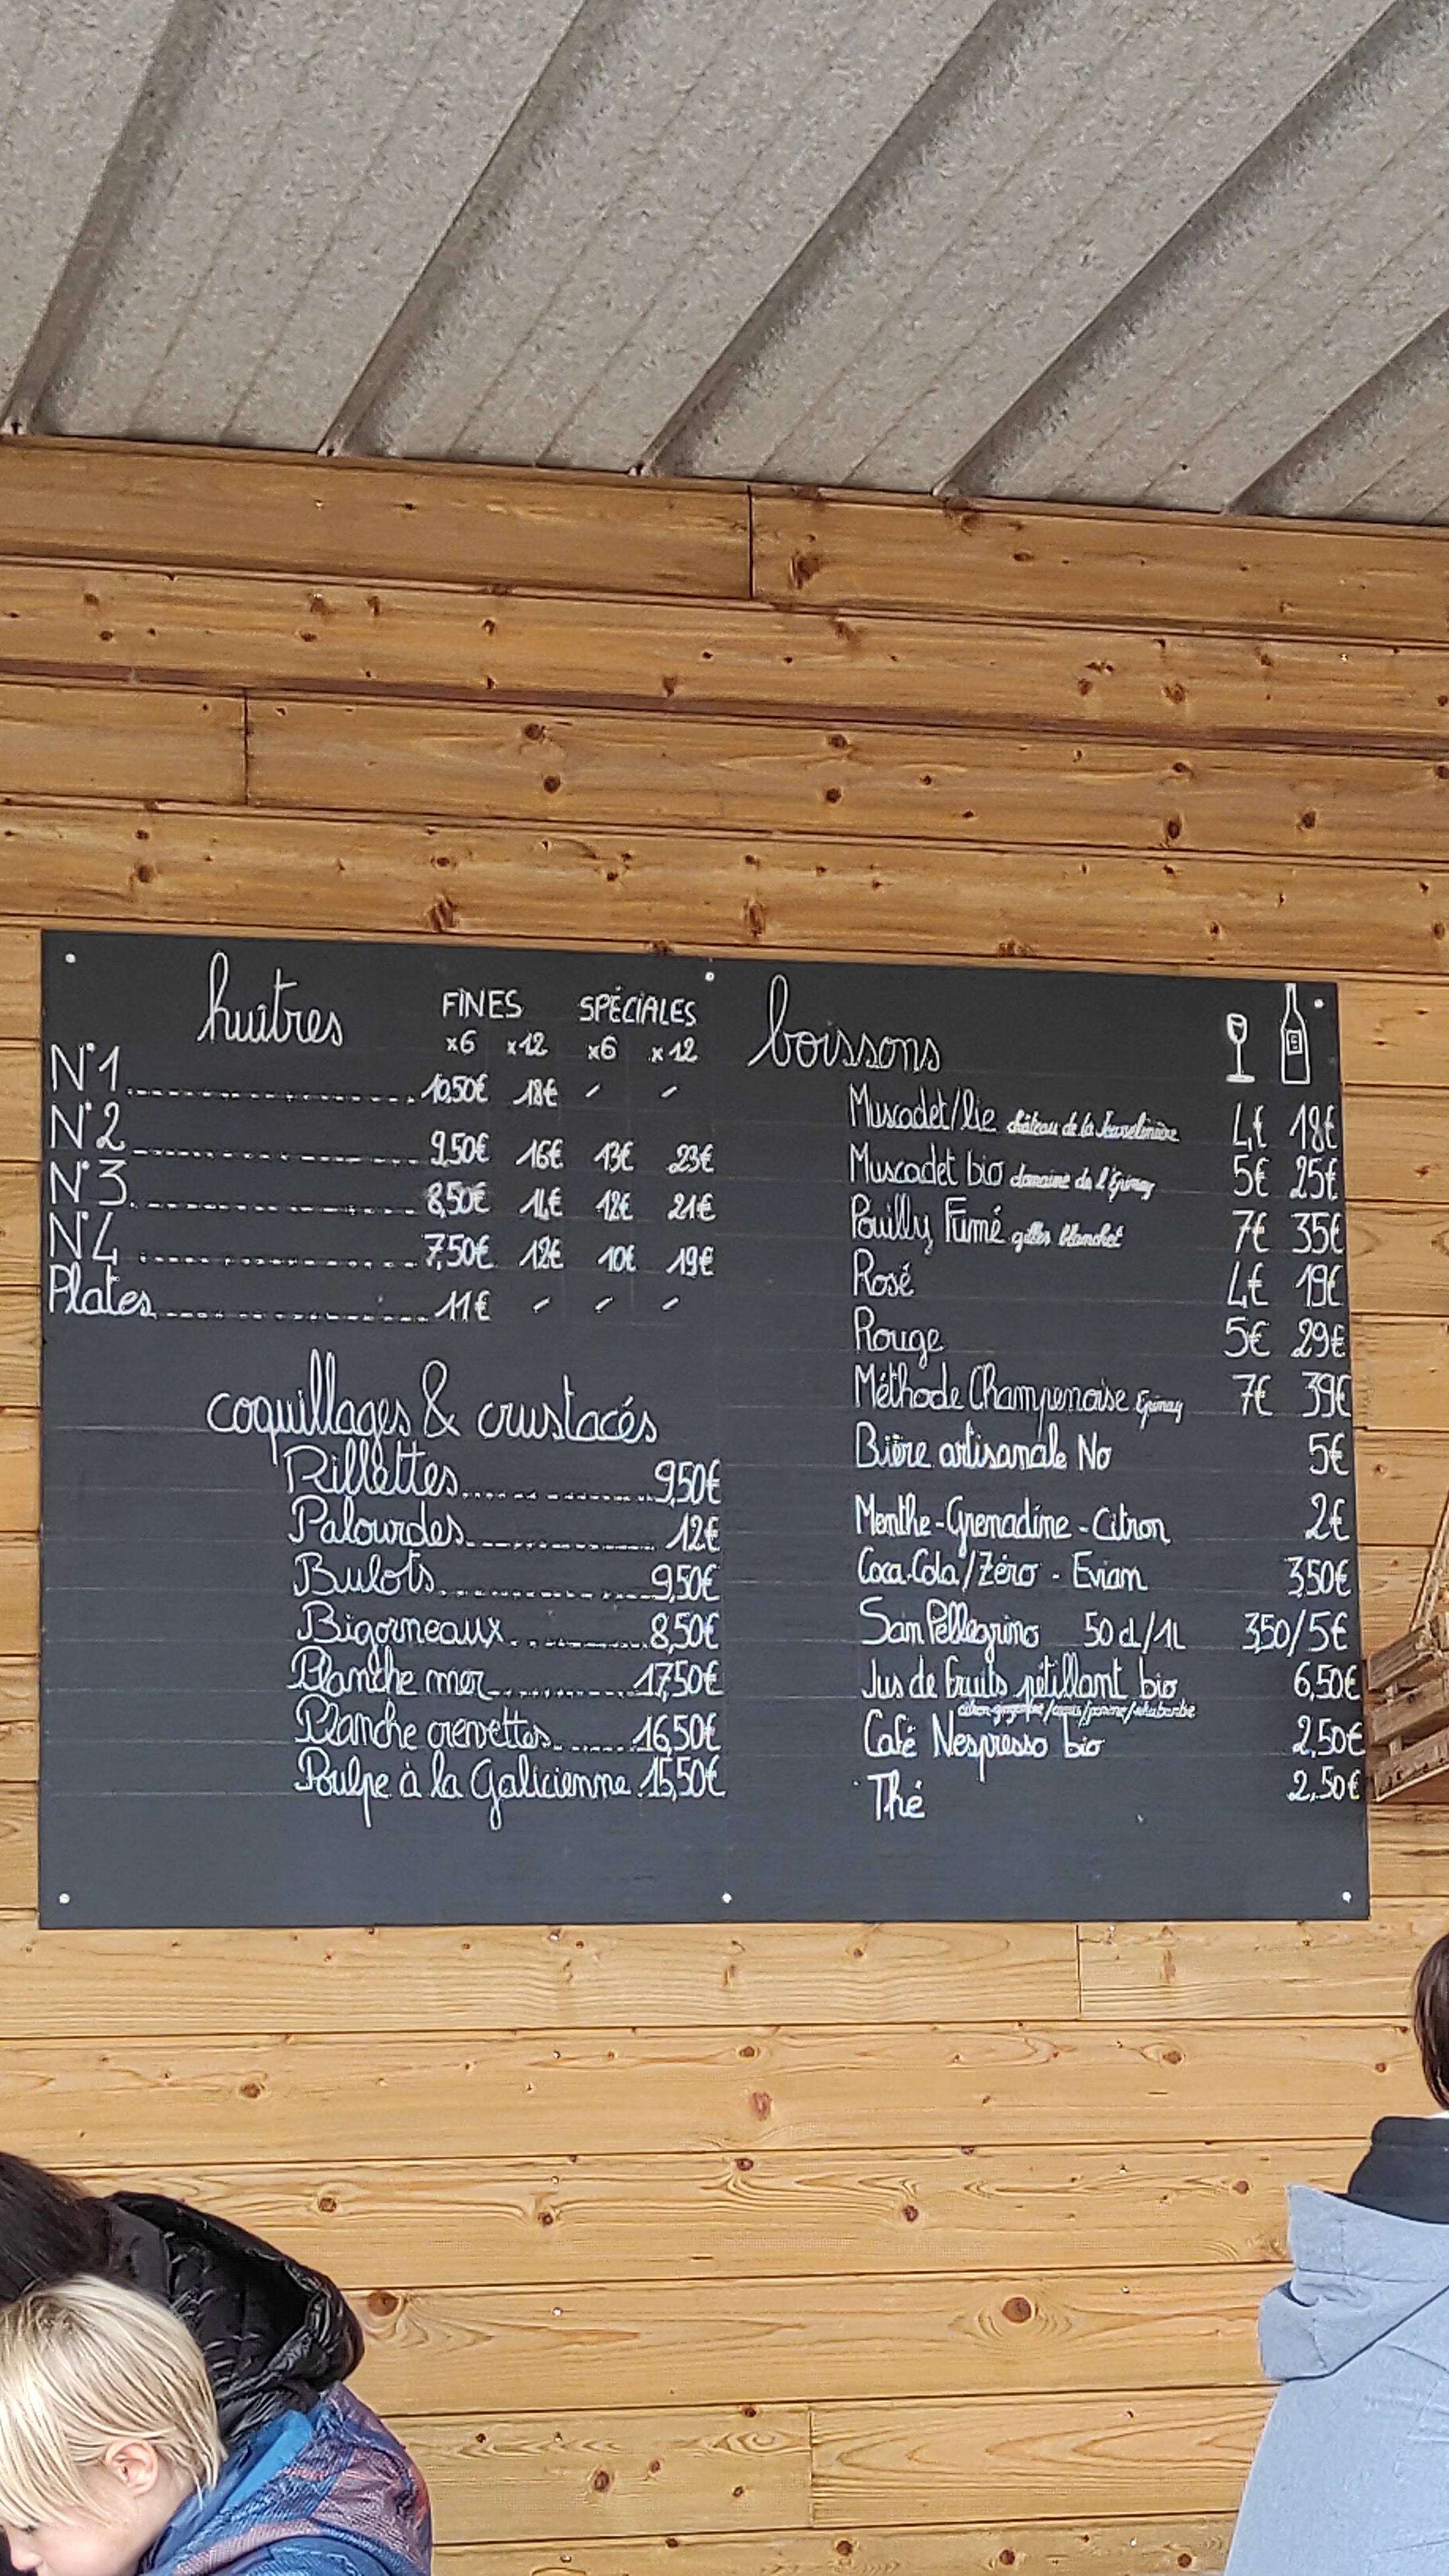 huîtres FINES SPÉCIALES
x6 x12 x6 x12
N°1 10,50€ 18€ - -
N°2 9,50€ 16€ 13€ 23€
N°3 8,50€ 14€ 12€ 21€
N°4 7,50€ 12€ 10€ 19€
Plates 11€ - - -
coquillages & crustacés
Rillettes 9,50€
Palourdes 12€
Bulots 9,50€
Bigorneaux 8,50€
Planche mer 17,50€
Planche crevettes 16,50€
Poulpe à la Galicienne 15,50€
boissons
Muscadet/lie château de la 4€ 18€
Muscadet bio domaine de l'Épinay 5€ 25€
Pouilly Fumé gilles blanchet 7€ 35€
Rosé 4€ 19€
Rouge 5€ 29€
Méthode Champenoise Epinay 7€ 39€
Bière artisanale No 5€
Menthe-Grenadine-Citron 2€
Coca-Cola/Zéro - Evian 3,50€
San Pellegrino 50cl/1L 3,50/5€
Jus de fruits pétillant bio 6,50€
citron-gingembre/cassis/pomme/rhubarbe
Café Nespresso bio 2,50€
Thé 2,50€